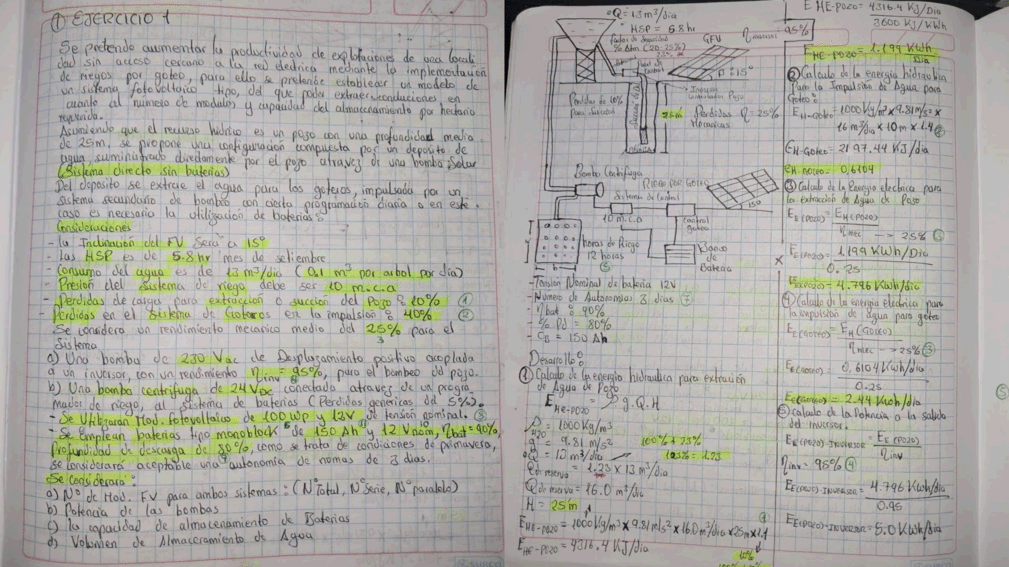 ① EJERCICIO 1
Se pretende aumentar la productividad de explotaciones de una locali
dad sin acceso cercano a la red eléctrica mediante la implementación
de riegos por goteo, para ello se pretende establecer un modelo de
un sistema fotovoltaico tipo, del que poder extraer conclusiones en
cuanto al numero de modulos y capacidad del almacenamiento por hectaria
requerida.
Asumiendo que el recurso hidrico es un pozo con una profundidad media
de 25m, se propone una configuración compuesta por un deposito de
agua, suministrado directamente por el pozo atravez de una bomba Solar
(Sistema directo sin baterias)
Del deposito se extrae el agua para los goteros, impulsada por un
sistema secundario de bombeo con cierta programación diaria o en este
caso es necesaria la utilización de baterias:
Consideraciones
- la Inclinación del FV Sera a 15°
- las HSP es de 5.8 hr mes de setiembre
- Consumo del agua es de 13 m³/dia (0.1 m³ por arbol por dia)
- Presion del sistema de riego debe ser 10 m.c.a
- Perdidas de carga para extracción o succión del Pozo: 10% ①
- Perdidas en el Sistema de Goteros en la impulsión: 40% ②
Se considera un rendimiento mecanico medio del 25% para el
3
Sistema
a) Una bomba de 230 Vac de Desplazamiento positivo acoplada
a un inversor, con un rendimiento ηinv = 95%, para el bombeo del pozo.
b) Una bomba centrifuga de 24 VDC conectada atravez de un progra
mador de riego, al sistema de baterias (Perdidas genericas del 5%).
- Se Utilizaran Mod. fotovoltaico de 100 Wp y 12V de tensión nominal.
- Se Emplean baterias tipo monoblock de 150 Ah y 12 Vnom, ηbat = 90%,
Profundidad de descarga de 80%, como se trata de condiciones de primavera,
se considerará aceptable una autonomia de nomas de 3 dias.
Se considerara:
a) N° de Mod. FV para ambos sistemas: (N°Total, N°Serie, N°paralelo)
b) Potencia de las bombas
c) la capacidad de almacenamiento de Baterias
d) Volumen de Almacenamiento de Agua
Q = 13 m³/dia
HSP = 5.8 hr
(20-25%)
GFV
15°
Perdidas de 10%
para Succión
25m
Perdidas η = 25%
Mecanicas
Bomba Centrifuga
RIEGO POR GOTEO
Sistema de Control
15°
10 m.c.a
Control
Goteo
horas de Riego
12 horas
Banco
de
Bateria
- Tensión Nominal de bateria 12V
- Numero de Autonomias 3 dias ⑦
- ηbat: 90%
- % Pd = 80%
- CB = 150 Ah
Desarrollo:
① Calculo de la energia hidraulica para extración
de Agua de Pozo
E HE-POZO = ρ.g.Q.H
ρ H2O = 1000 Kg/m³
g = 9.81 m/s² 100% + 23%
Q = 13 m³/dia 123% = 1.23
Q de reserva = 1.23 x 13 m³/dia
Q de reserva = 16.0 m³/dia
H = 25m
E HE-POZO = 1000 Kg/m³ x 9.81 m/s² x 16.0 m³/dia x 25m x 1.1
E HE-POZO = 4316.4 KJ/dia
10%
E HE-POZO = 4316.4 KJ/Dia
3600 KJ/KWh
95%
E HE-POZO = 1.199 KWh
Dia
② Calculo de la energia hidraulica
Para la Impulsion de Agua para
Goteo:
EH-Goteo = 1000 Kg/m³ x 9.81 m/s² x
16 m³/dia x 10m x 1.4 ②
EH-Goteo = 2197.44 KJ/dia
EH-GOTEO = 0,6104
③ Calculo de la Energia electrica para
la extracción de Agua de Pozo
EE (POZO) = EH (POZO)
ηmec → 25% ③
EE (POZO) = 1.199 KWh/Dia
0.25
EE(POZO) = 4.796 KWh/dia
④ Calculo de la energia electrica para
la impulsión de agua para goteo
EE (GOTEO) = EH (GOTEO)
ηmec → 25% ③
EE (GOTEO) = 0,6104 KWh/dia
0.25
EE(GOTEO) = 2.44 KWh/dia
⑤ Calculo de la Potencia a la salida
del inversor.
EE(POZO)-INVERSOR = EE (POZO)
ηinv
ηinv = 95% ④
EE(POZO)-INVERSOR = 4.796 KWh/dia
0.95
EE(POZO)-INVERSOR = 5.0 KWh/dia